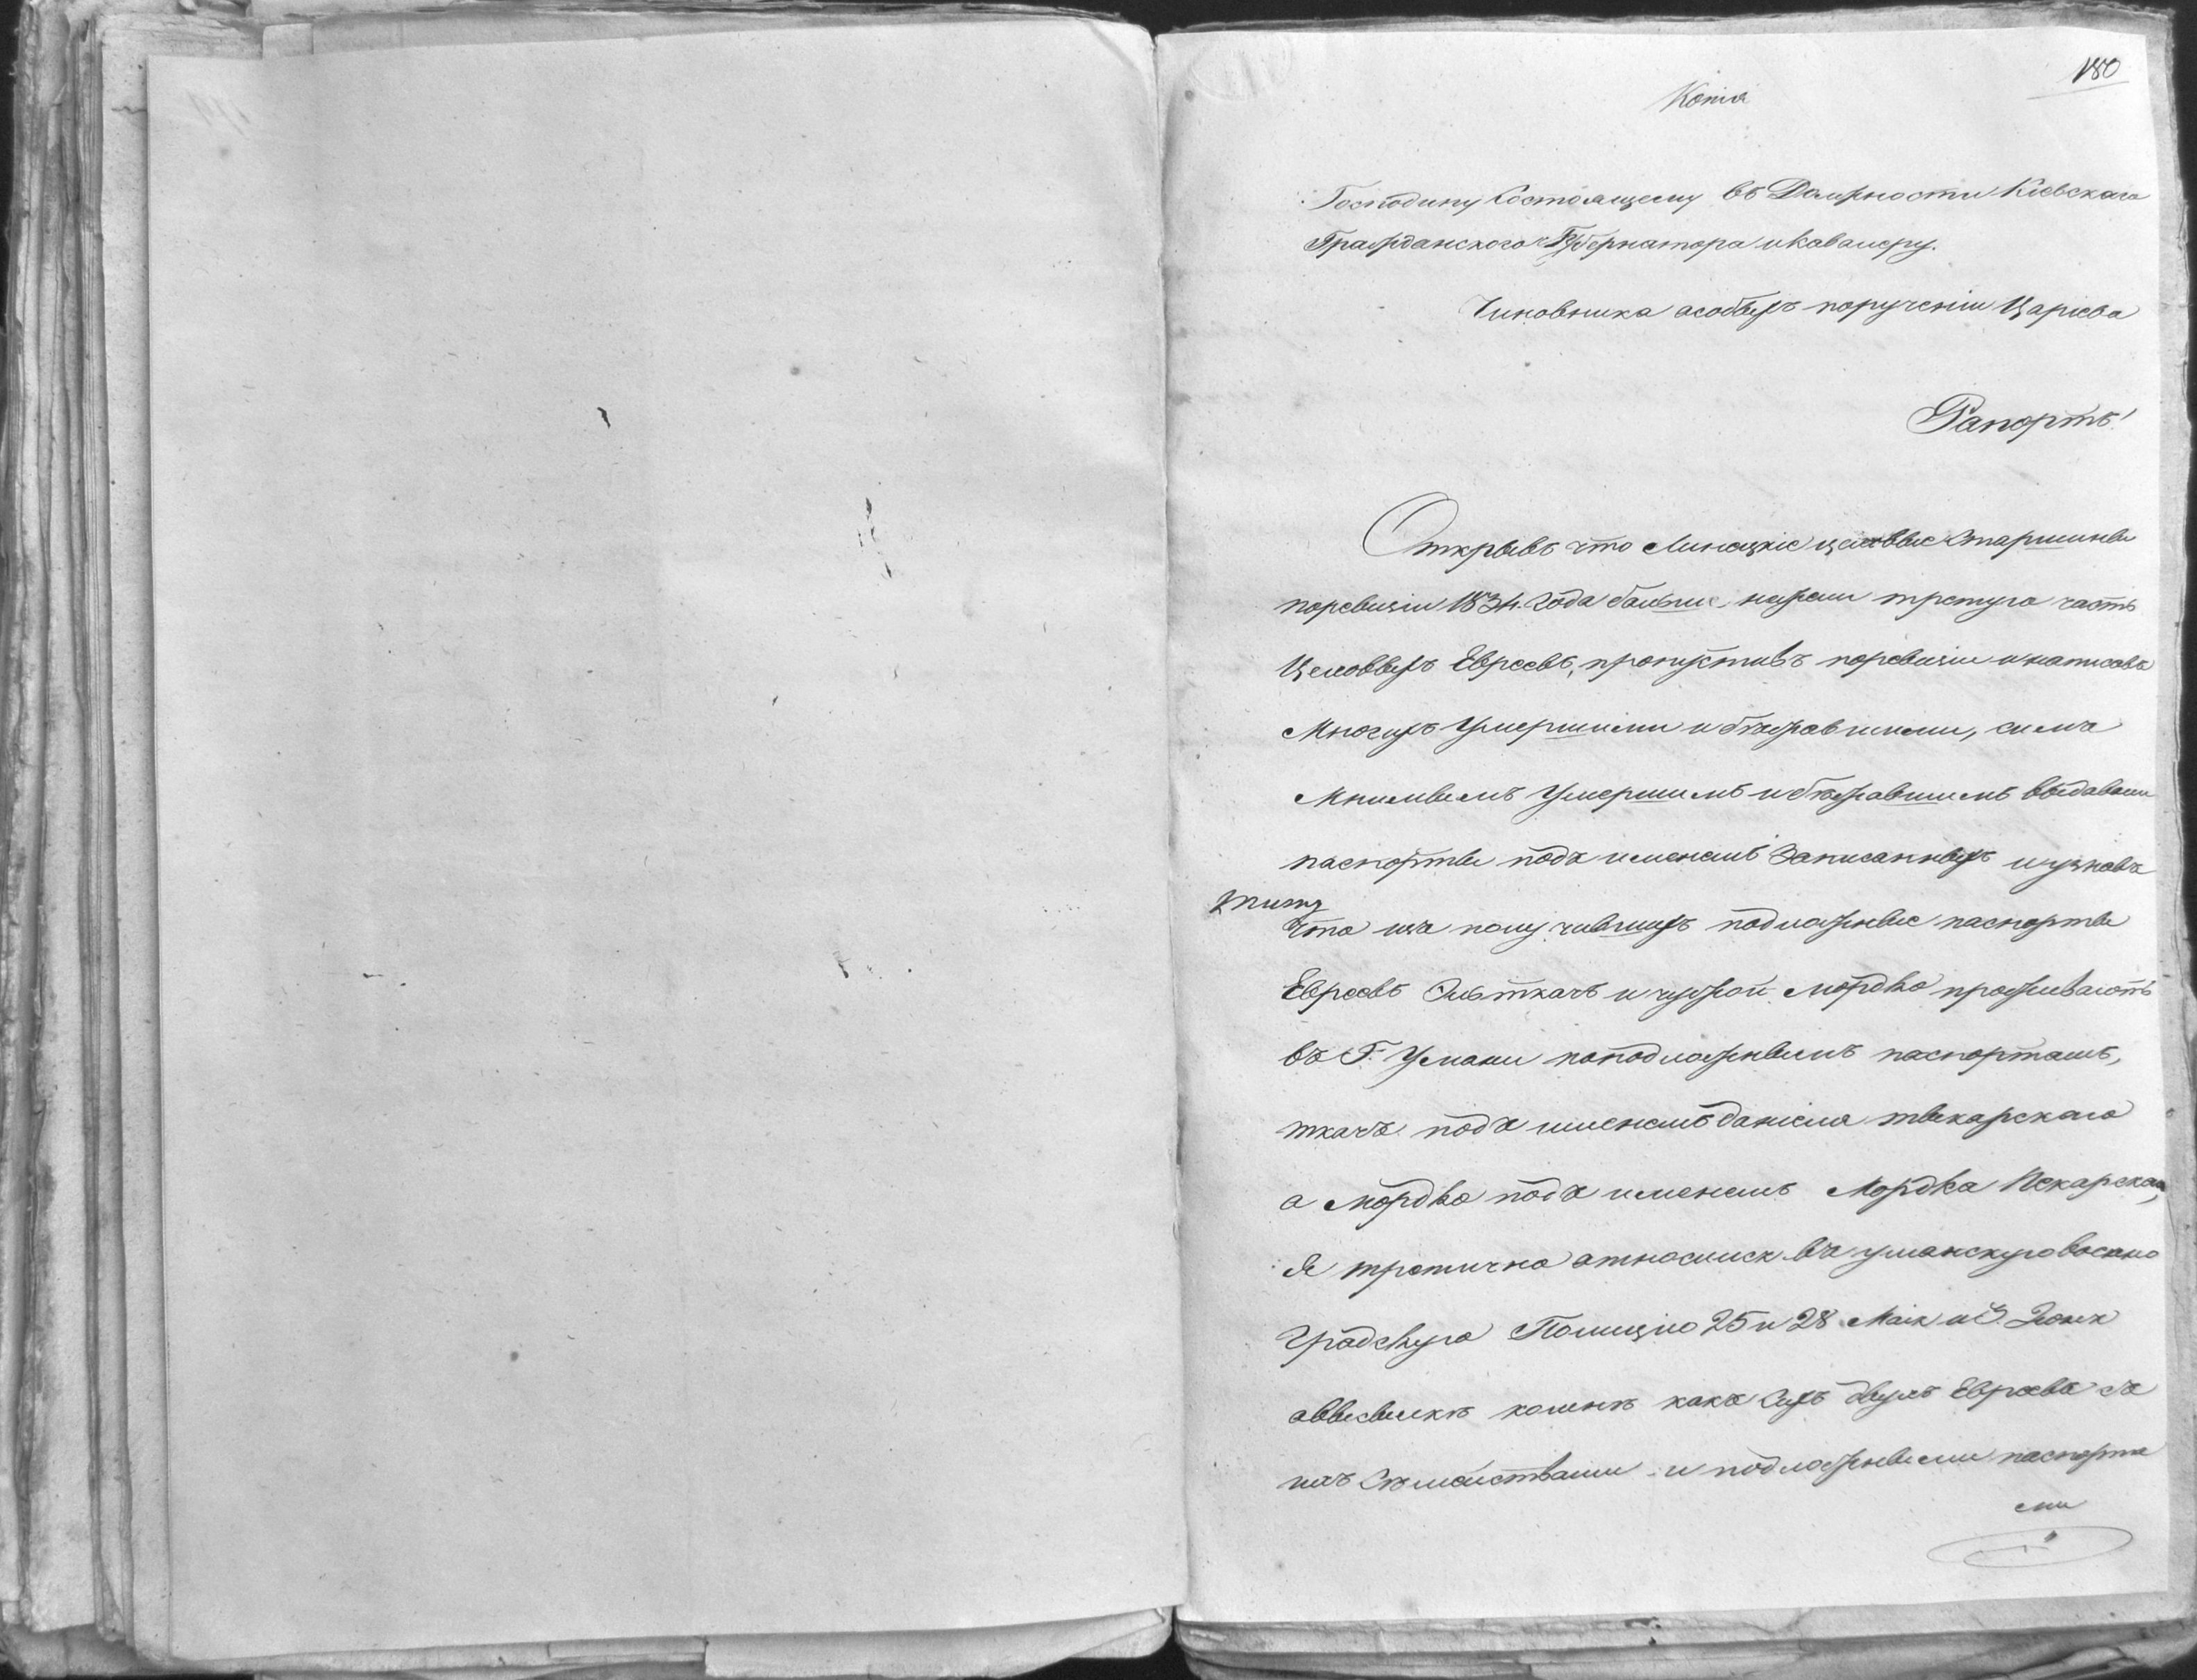 180
Копія
Господину Состоящему въ Должности Кіевскаго
Гражданскаго Губернатора и Кавалеру.
Чиновника особыхъ порученіи
Рапортъ!
Открывъ что Липецкіе Старшины
поревизіи 1834. года нежели третую часть
Евреевъ, пропустивъ поревизіи и написавъ
Многихъ Умершими и бежавшими, симъ
Мнимымъ Умершимъ и бежавшимъ выдавали
паспорты подъ именемъ Записанныхъ и узнавъ
что изъ получившихъ подложные паспорты
Евреевъ ткачъ и Мордко проживаютъ
въ Г. Умани поподложнымъ паспортамъ,
ткачъ подъ именемъ даніеля
а Мордко подъ именемъ Мордка Пекарскаго,
Я третично относился въ уманскую военно
Градскую Полицію 25 и 28 Маія и 3 Іюня
о высылке комне какъ Сихъ двухъ Евреевъ съ
ихъ Семействами и подложными паспорта
ми